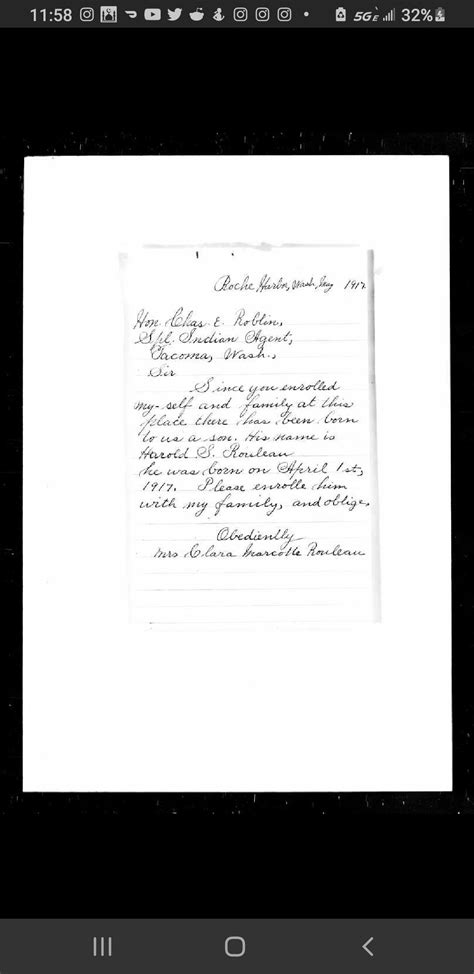 11:58 5GE 32%
Roche Harbor, Wash, 1917
Hon. Chas. E. Roblin,
Spl. Indian Agent,
Tacoma, Wash.,
Sir
Since you enrolled
my-self and family at this
place there has been born
to us a son. His name is
Harold S. Rouleau
he was born on April 1st,
1917. Please enrolle him
with my family, and oblige,
Obediently
Mrs Clara Marcotte Rouleau